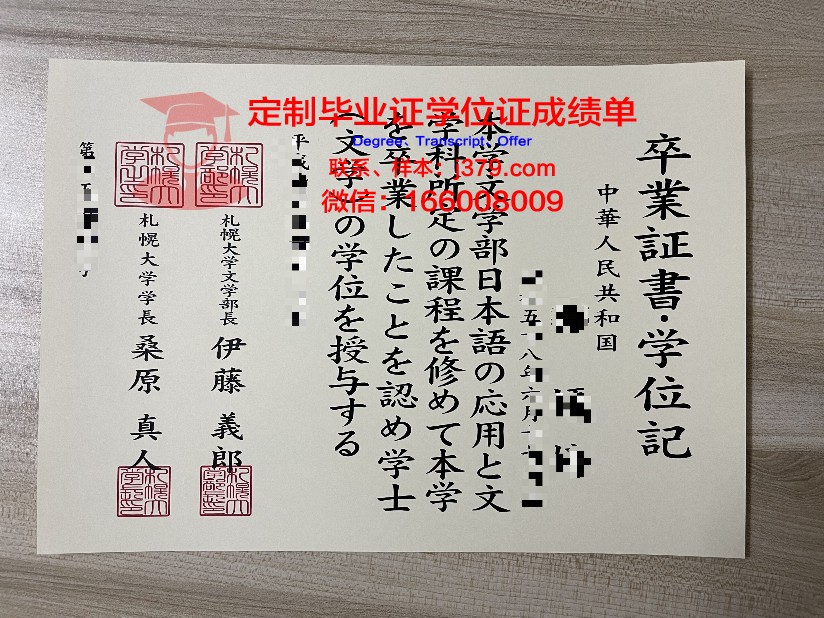 定制毕业证学位证成绩单
Degree、Transcript、Offer
联系、样本：j379.com
微信：166008009
卒業証書・学位記
中華人民共和国
八年六月
本学文学部日本語の応用と文
学科所定の課程を修めて本学
を卒業したことを認め学士
（文学）の学位を授与する
平成
札幌大学文学部長 伊藤 義郎
札幌大学学長 桑原 真人
第